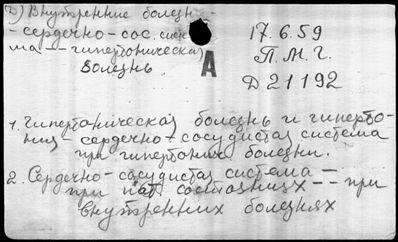 Д) Внутренние болезн -
- сердечно-сос. систе
ма -- гипертоническая
болезнь.
А
17.6.59
П.М.Г.
Д 21192
1. Гипертоническая болезнь и гиперто-
ния - сердечно-сосудистая система
при гипертонич болезни.
2. Сердечно-сосудистая система -
при пат. состояниях -- при
внутренних болезнях